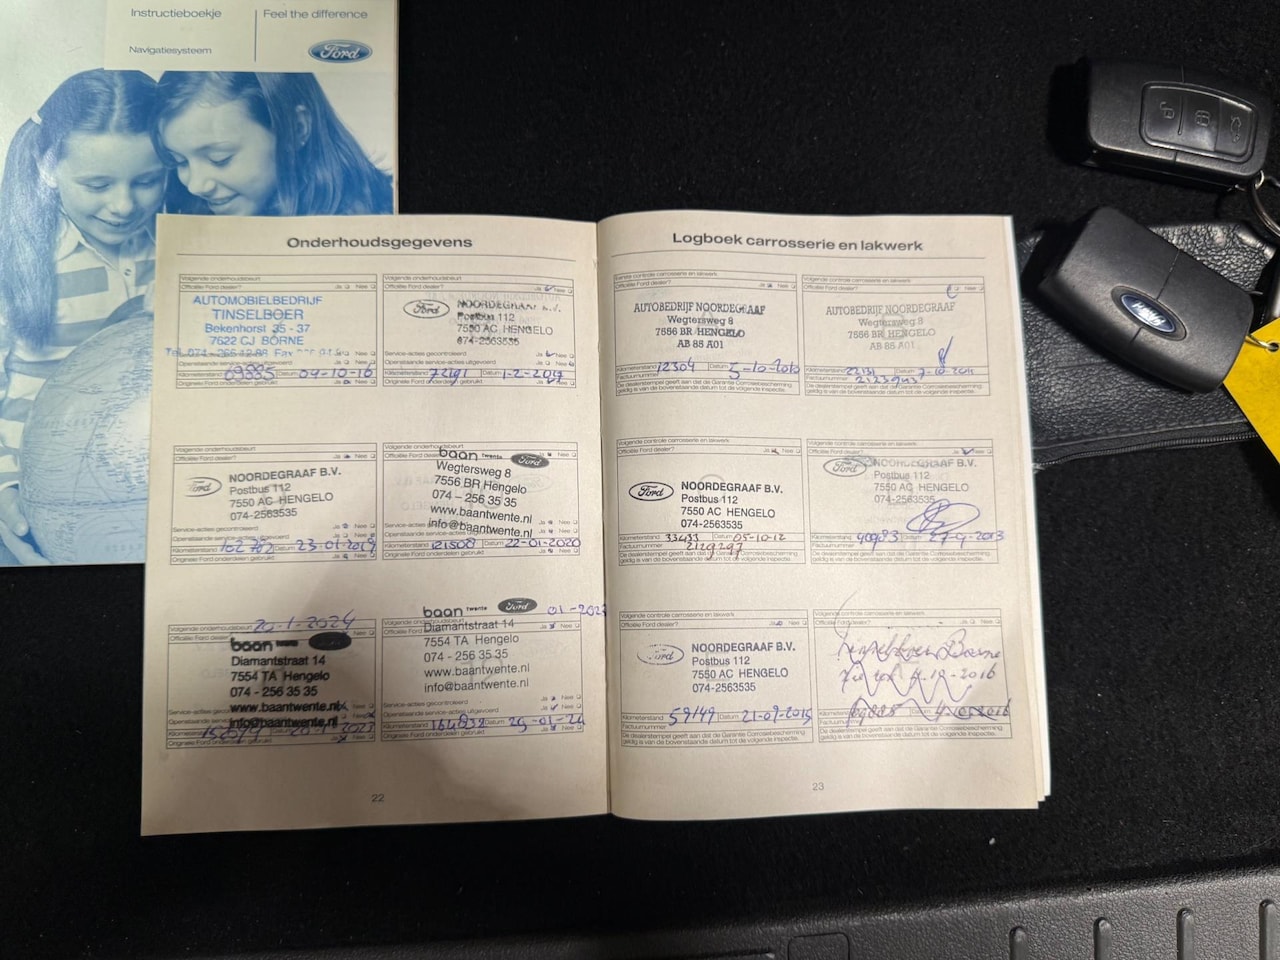 Instructieboekje
Feel the difference
Navigatiesysteem
Ford
Onderhoudsgegevens
Volgende onderhoudsbeurt
Officiële Ford dealer? Ja Nee
AUTOMOBIELBEDRIJF
TINSELBOER
Bekenhorst 35 - 37
7622 CJ BORNE
Service-acties gecontroleerd
Openstaande service-acties uitgevoerd
Kilometerstand 69885 Datum 04-10-16
Originele Ford onderdelen gebruikt
Officiële Ford dealer? Ja Nee
Ford
NOORDEGRAAF B.V.
Postbus 112
7550 AC HENGELO
074-2563535
Service-acties gecontroleerd
Openstaande service-acties uitgevoerd
Kilometerstand 72191 Datum 1-2-2017
Originele Ford onderdelen gebruikt
Volgende onderhoudsbeurt
Officiële Ford dealer? Ja Nee
Ford
NOORDEGRAAF B.V.
Postbus 112
7550 AC HENGELO
074-2563535
Service-acties gecontroleerd
Openstaande service-acties uitgevoerd
Kilometerstand Datum 23-01-2019
Originele Ford onderdelen gebruikt
Volgende onderhoudsbeurt
Officiële Ford dealer?
baan twente Ford
Wegtersweg 8
7556 BR Hengelo
074 - 256 35 35
www.baantwente.nl
info@baantwente.nl
Kilometerstand 121509 Datum 22-01-2020
Originele Ford onderdelen gebruikt
Volgende onderhoudsbeurt
Officiële Ford dealer?
baan
Diamantstraat 14
7554 TA Hengelo
074 - 256 35 35
www.baantwente.nl
info@baantwente.nl
Originele Ford onderdelen gebruikt
Volgende onderhoudsbeurt
Officiële Ford dealer?
baan twente Ford
Diamantstraat 14
7554 TA Hengelo
074 - 256 35 35
www.baantwente.nl
info@baantwente.nl
Service-acties gecontroleerd
Openstaande service-acties uitgevoerd
Kilometerstand Datum 25-01-24
Originele Ford onderdelen gebruikt
22
Logboek carrosserie en lakwerk
Eerste controle carrosserie en lakwerk
Officiële Ford dealer? Ja Nee
AUTOBEDRIJF NOORDEGRAAF
Wegtersweg 8
7556 BR HENGELO
AB 85 A01
Kilometerstand 12304 Datum 5-10-2010
Factuurnummer
De dealerstempel geeft aan dat de Garantie Corrosiebescherming
geldig is van de bovenstaande datum tot de volgende inspectie.
Volgende controle carrosserie en lakwerk
Officiële Ford dealer? Ja Nee
AUTOBEDRIJF NOORDEGRAAF
Wegtersweg 8
7556 BR HENGELO
AB 85 A01
Kilometerstand 22131 Datum 7-10-2011
Factuurnummer 2123943
De dealerstempel geeft aan dat de Garantie Corrosiebescherming
geldig is van de bovenstaande datum tot de volgende inspectie.
Volgende controle carrosserie en lakwerk
Officiële Ford dealer? Ja Nee
Ford
NOORDEGRAAF B.V.
Postbus 112
7550 AC HENGELO
074-2563535
Kilometerstand 33433 Datum 05-10-12
Factuurnummer 2129297
De dealerstempel geeft aan dat de Garantie Corrosiebescherming
geldig is van de bovenstaande datum tot de volgende inspectie.
Volgende controle carrosserie en lakwerk
Officiële Ford dealer? Ja Nee
Ford
NOORDEGRAAF B.V.
Postbus 112
7550 AC HENGELO
074-2563535
Kilometerstand 40983 Datum 27-9-2013
Factuurnummer
De dealerstempel geeft aan dat de Garantie Corrosiebescherming
geldig is van de bovenstaande datum tot de volgende inspectie.
Volgende controle carrosserie en lakwerk
Officiële Ford dealer? Ja Nee
Ford
NOORDEGRAAF B.V.
Postbus 112
7550 AC HENGELO
074-2563535
Kilometerstand 59149 Datum 21-09-2015
Factuurnummer
De dealerstempel geeft aan dat de Garantie Corrosiebescherming
geldig is van de bovenstaande datum tot de volgende inspectie.
Volgende controle carrosserie en lakwerk
Officiële Ford dealer? Ja Nee
Borne
4-10-2016
De dealerstempel geeft aan dat de Garantie Corrosiebescherming
geldig is van de bovenstaande datum tot de volgende inspectie.
23
Ford